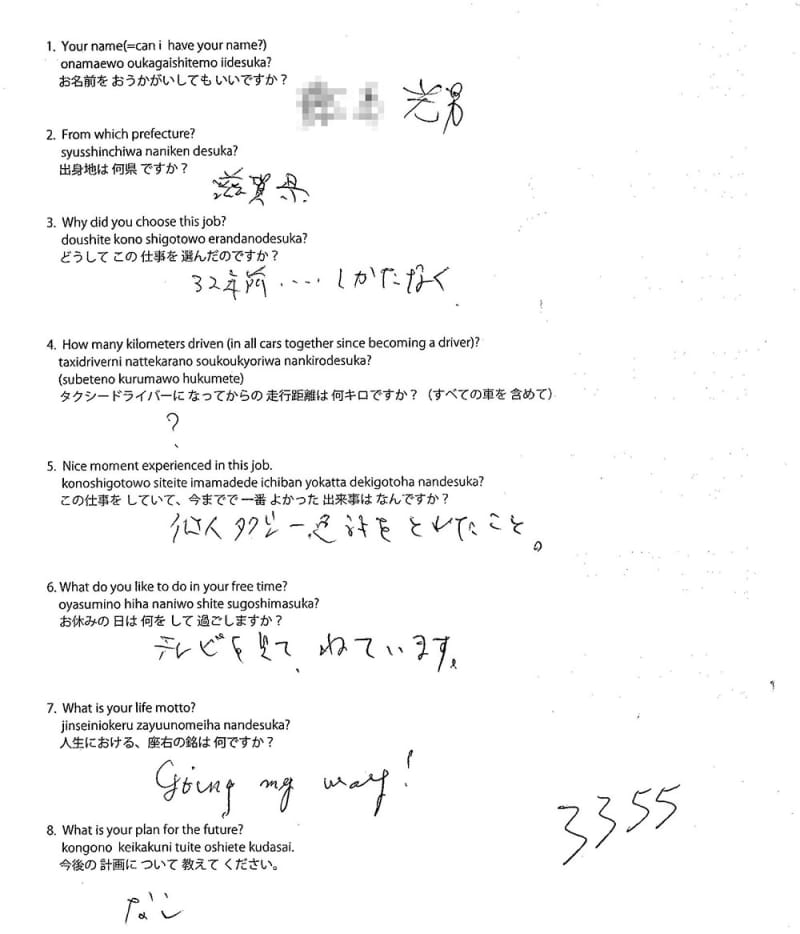 1. Your name(=can i have your name?)
onamaewo oukagaishitemo iidesuka?
お名前を おうかがいしても いいですか？
光男
2. From which prefecture?
syusshinchiwa naniken desuka?
出身地は 何県 ですか？
滋賀県
3. Why did you choose this job?
doushite kono shigotowo erandanodesuka?
どうして この 仕事を 選んだのですか？
32年前....しかたなく
4. How many kilometers driven (in all cars together since becoming a driver)?
taxidriverni nattekarano soukoukyoriwa nankirodesuka?
(subeteno kurumawo hukumete)
タクシードライバーに なってからの 走行距離は 何キロですか？（すべての車を 含めて）
?
5. Nice moment experienced in this job.
konoshigotowo siteite imamadede ichiban yokatta dekigotoha nandesuka?
この仕事を していて、今までで 一番 よかった 出来事は なんですか？
個人タクシー免許をとれたこと。
6. What do you like to do in your free time?
oyasumino hiha naniwo shite sugoshimasuka?
お休みの 日は 何を して 過ごしますか？
テレビを見て、ねています。
7. What is your life motto?
jinseiniokeru zayuunomeiha nandesuka?
人生における、座右の銘は 何ですか？
Going my way!
3355
8. What is your plan for the future?
kongono keikakuni tuite oshiete kudasai.
今後の 計画に ついて 教えて ください。
なし